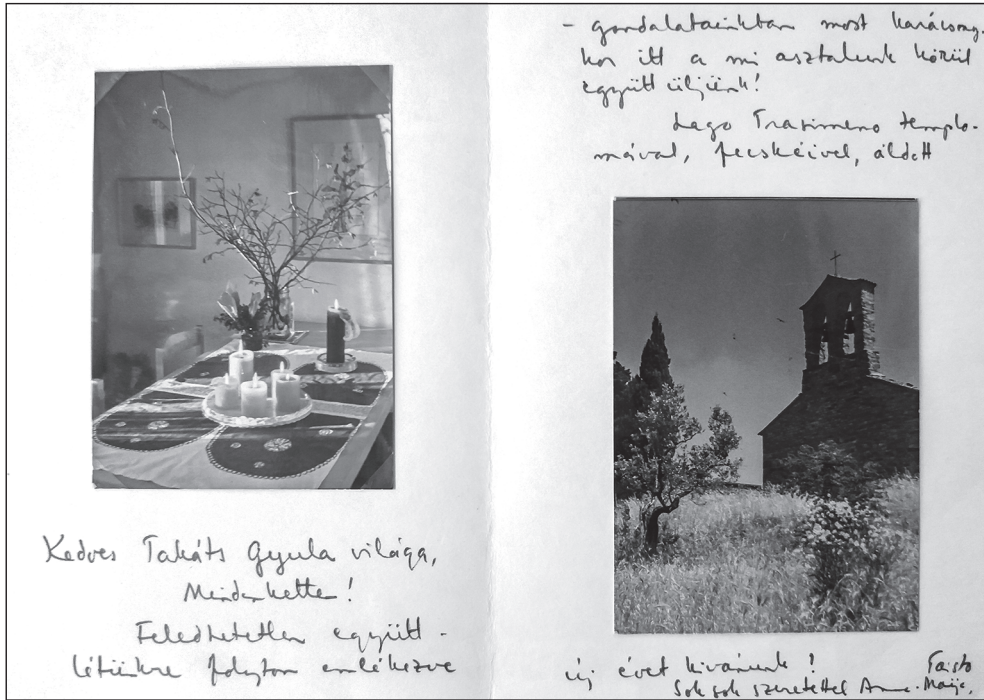 Kedves Takáts Gyula világa,
Mindenketten!
Feledhetetlen együtt-
létünkre folyton emlékezve
- gondalatainkban most karácsony-
kor itt a mi asztalunk körül
együtt üljünk!
Lago Trasimeno templo-
mával, fecskéivel, áldott
új évet kívánunk!
Sok sok szeretettel Anna-Maija,
Taisto